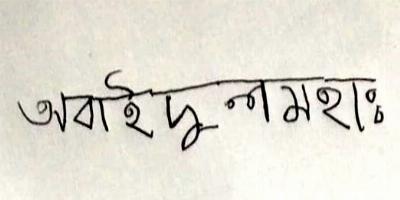 অবাইদুল মহাঃ